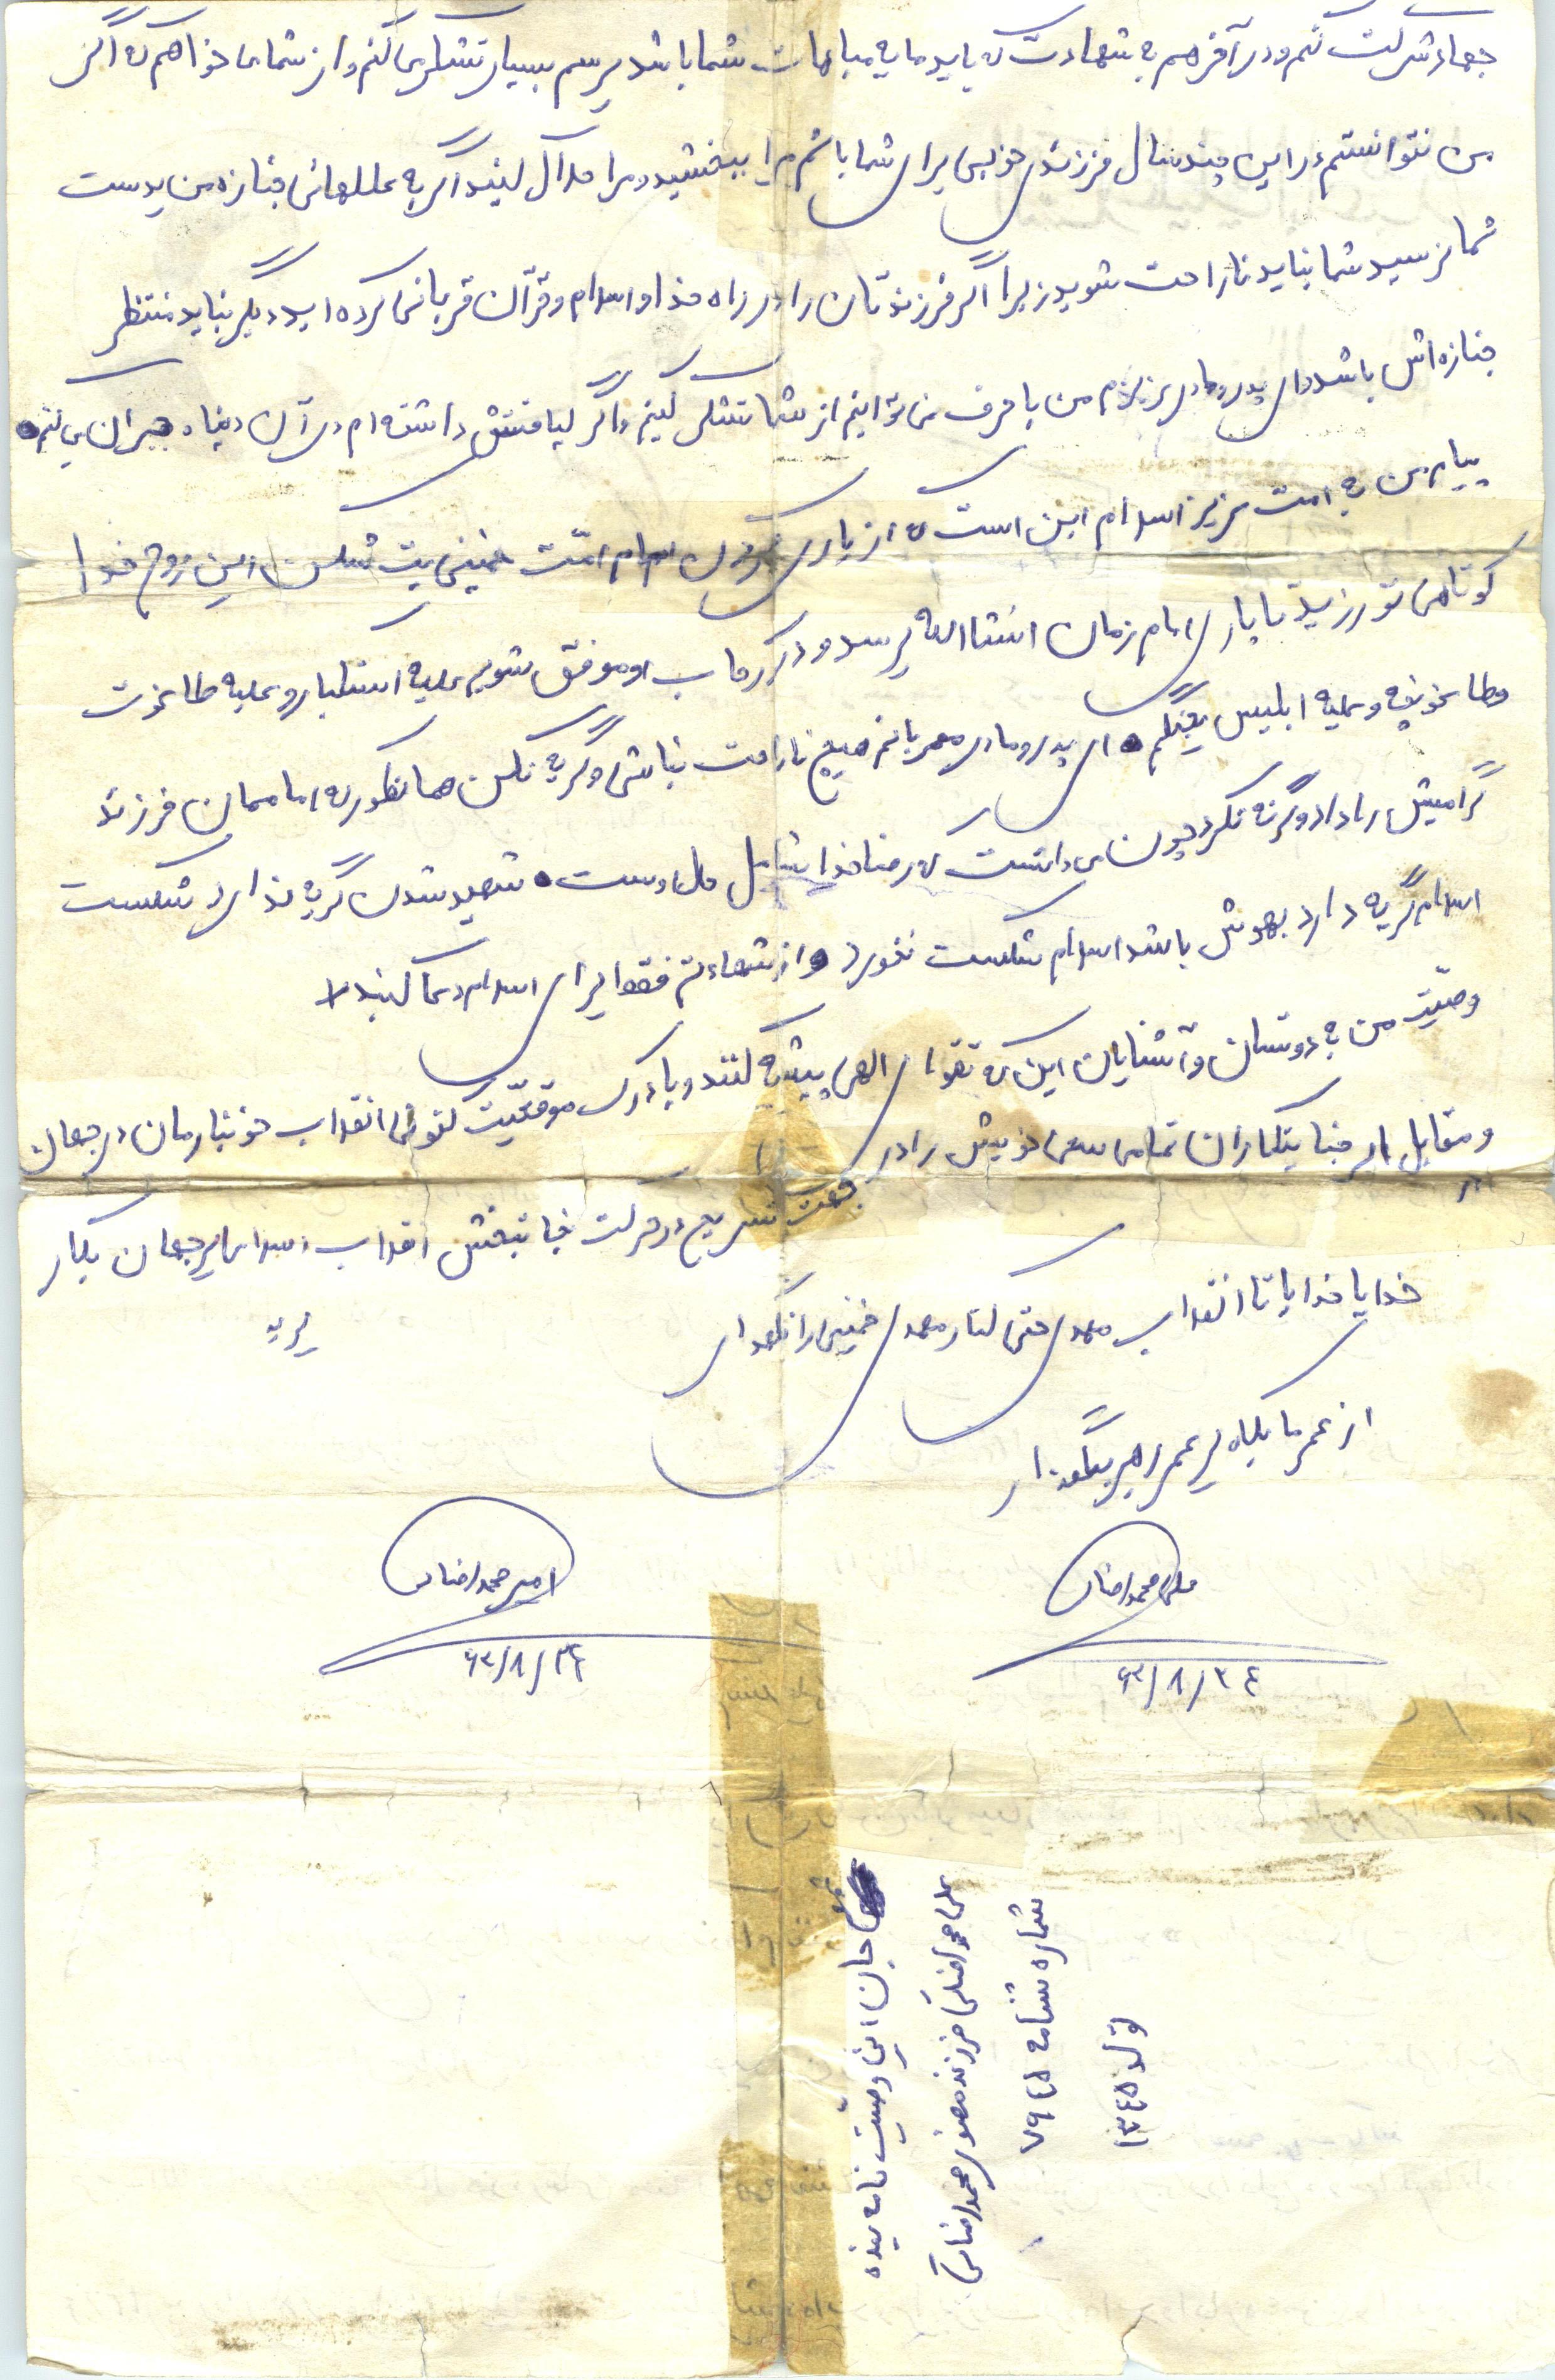 جهاد شرکت کنم و در آخر هم به شهادت که باید مایه مباهات شما باشد برسم بسیار تشکر می کنم و از شما می خواهم که اگر
من نتوانستم در این چند سال فرزندی خوبی برای شما باشم مرا ببخشید و مرا حلال کنید اگر به عللهائی جنازه من بدست
شما نرسید شما نباید ناراحت شوید زیرا اگر فرزندتان را در راه خدا و اسلام و قرآن قربانی کرده اید دیگر نباید منتظر
جنازه اش باشد ای پدر و مادر عزیزم من با حرف نمی توانم از شما تشکر کنم و اگر لیاقتش داشته ام در آن دنیا جبران می کنم
پیام من به امت عزیز اسلام این است که از یاری کردن امام امّت خمینی بت شکن این روح خدا
کوتاهی نورزید تا یاری امام زمان انشاالله برسد و در رکاب او موفق شویم علیه استکبار و علیه طاغوت
و طاغوتچه و علیه ابلیس بجنگم ای پدر و مادر مهربانم هیچ ناراحت نباش و گریه نکن همانطور که امام مان فرزند
گرامیش را داد و گریه نکرد چون می دانست که رضا خدا شامل حال اوست شهید شدن گریه ندارد شکست
اسلام گریه دارد بهوش باشد اسلام شکست نخورد و از شهادتم فقط برای اسلام دعا کنید
وصیّت من به دوستان و آشنایان این که تقوای الهی پیشه کنند و با درک موقعیّت کنونی انقلاب خونبارمان در جهان
و مقابل ابر جنایتکاران تمامی سعی خویش را در
جهت تسریع در حرکت نجاتبخش انقلاب اسلامی در جهان بکار
برید
خدایا خدایا تا انقلاب مهدی حتی کنار مهدی خمینی را نگهدار
از عمر ما بکاه بر عمر رهبر بیگفزار
علی محمدرضائی
امیر محمدرضائی
۶۳/۸/۲۴
۶۳/۸/۲۴
جان این وصیّت نامه بنده
علی محمدرضائی فرزند منصور محمدرضائی
شماره شنامه ۷۹۴۵
تولد ۱۳۴۵